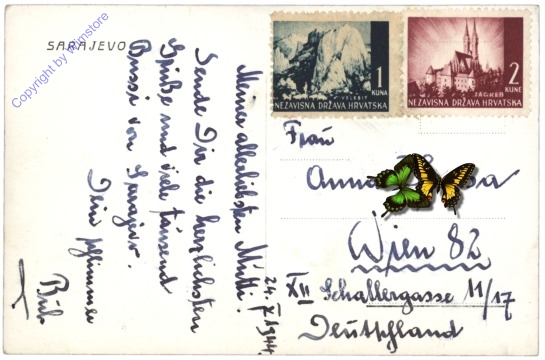 SARAJEVO
Copyright by Wurnstore
VELEBIT
1
KUNE
NEZAVISNA DRŽAVA HRVATSKA
ZAGREB
2
KUNE
NEZAVISNA DRŽAVA HRVATSKA
24. X 1944.
Meiner allerliebsten Mutti!
Sende Dir die herzlichsten
Grüße und viele tausend
Bussi von Sarajevo.
Dein schlimmer
Bub
Frau
Anna
Wien 82
XII Schallergasse 11/17
Deutschland